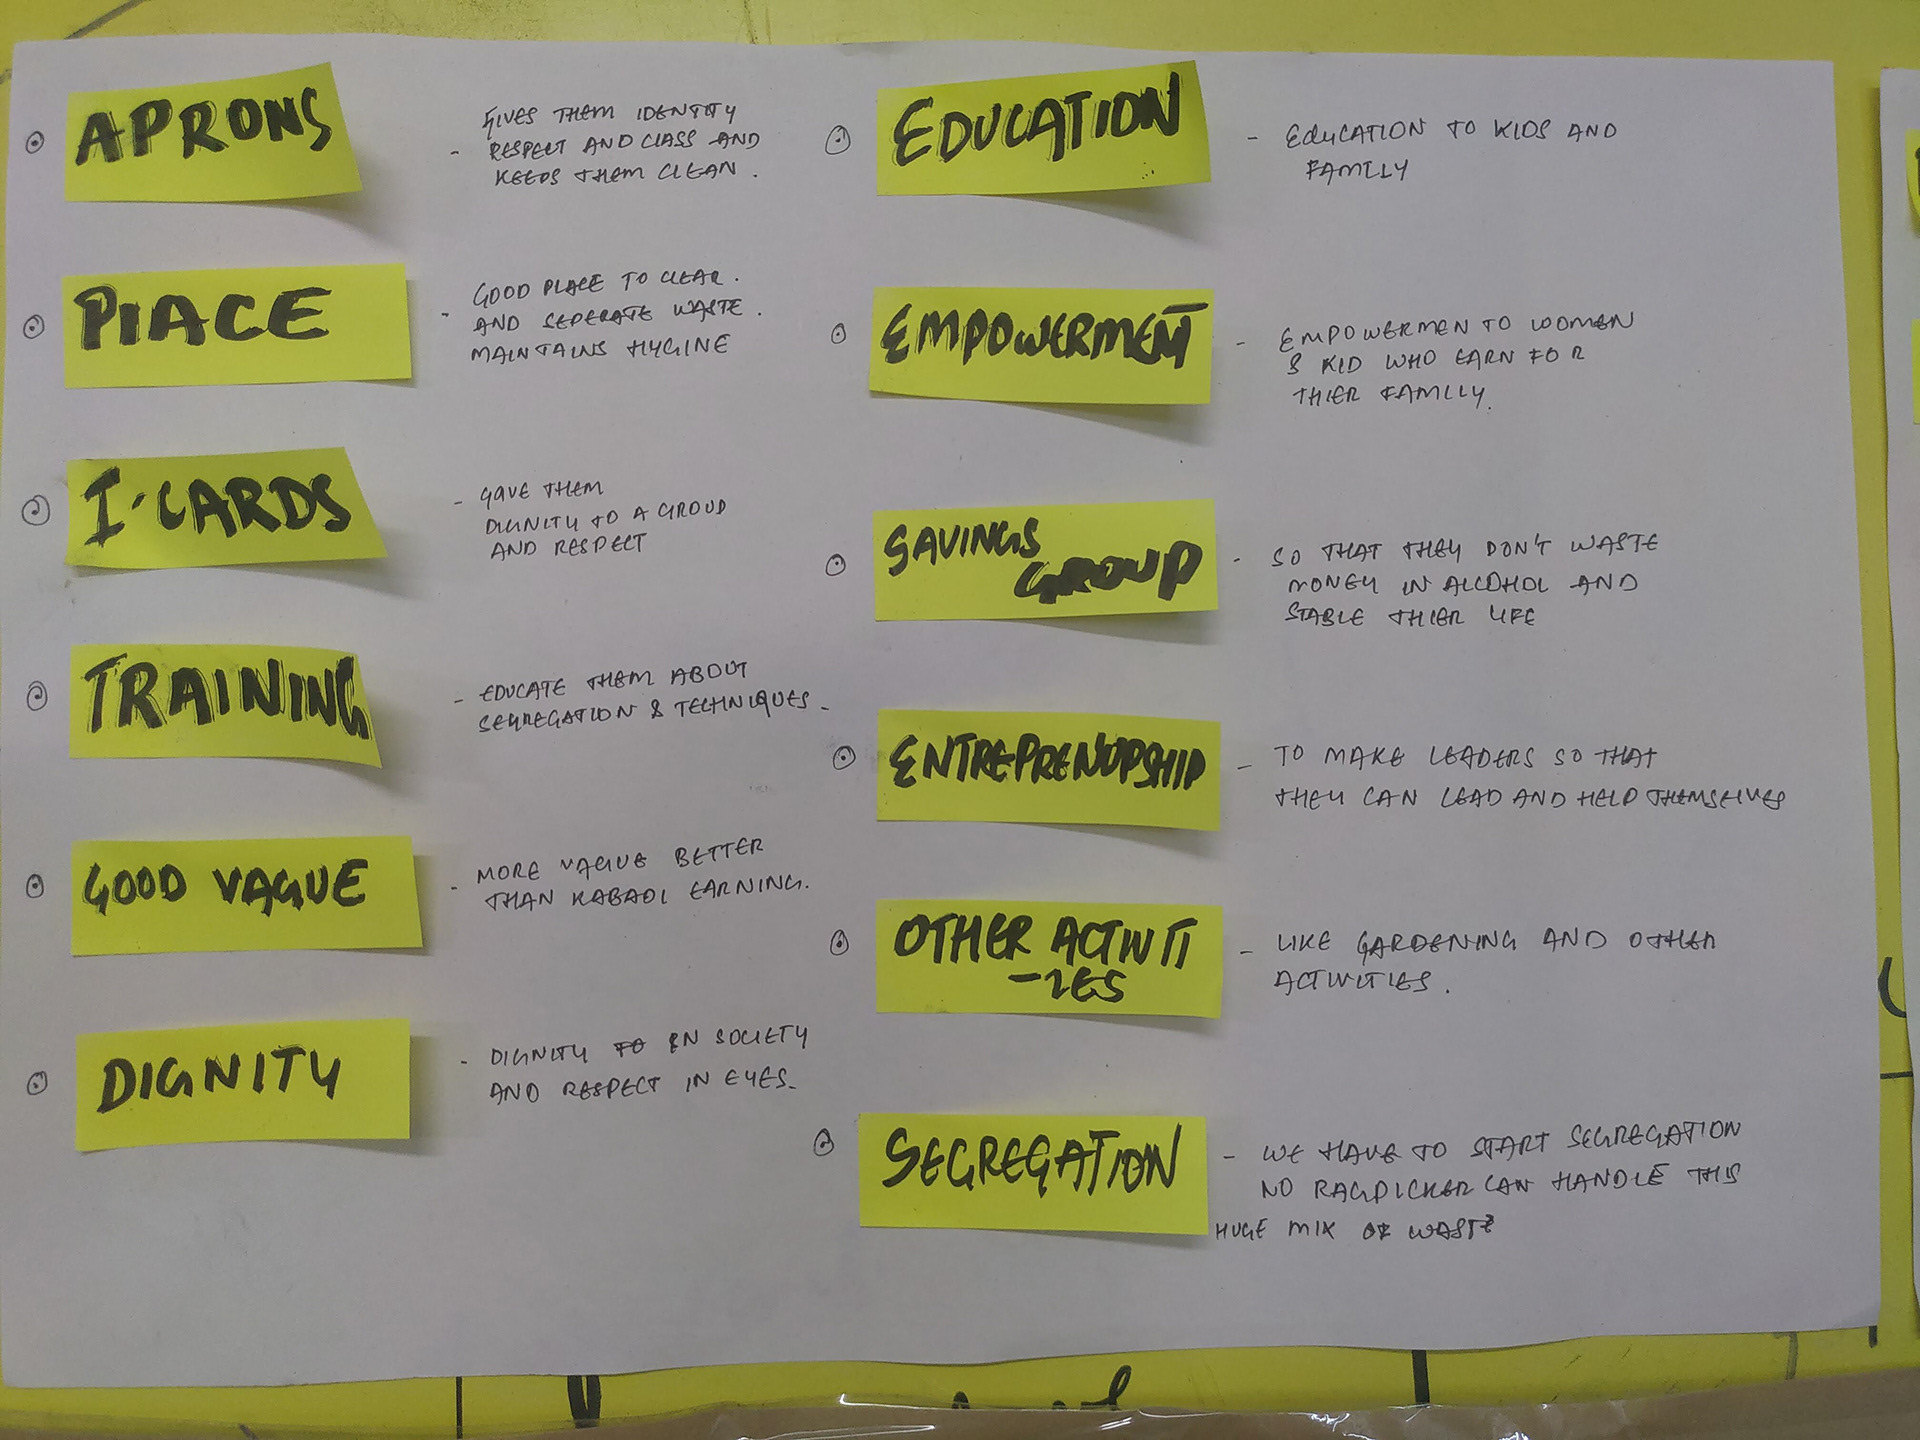 APRONS
- GIVES THEM IDENTITY
RESPECT AND CLASS AND
KEEDS THEM CLEAN .
PLACE
- GOOD PLACE TO CLEAR .
AND SEPERATE WASTE .
MAINTAINS HYGINE
I-CARDS
- GAVE THEM
DIGNITY TO A GROUP
AND RESPECT
TRAINING
- EDUCATE THEM ABOUT
SEGREGATION & TECHNIQUES -
GOOD VAGUE
- MORE VAGUE BETTER
THAN KABADI EARNING.
DIGNITY
- DIGNITY TO IN SOCIETY
AND RESPECT IN EYES.
EDUCATION
- EDUCATION TO KIDS AND
FAMILY
EMPOWERMENT
- EMPOWERMEN TO WOMEN
& KID WHO EARN FOR
THIER FAMILY.
SAVINGS
GROUP
- SO THAT THEY DON'T WASTE
MONEY IN ALCOHOL AND
STABLE THIER LIFE
ENTREPRENUPSHIP
- TO MAKE LEADERS SO THAT
THEY CAN LEAD AND HELP THEMSELVES
OTHER ACTIVITI
-IES
- LIKE GARDENING AND OTHER
ACTIVITIES .
SEGREGATION
- WE HAVE TO START SEGREGATION
NO RAGPICKER CAN HANDLE THIS
HUGE MIX OF WASTE